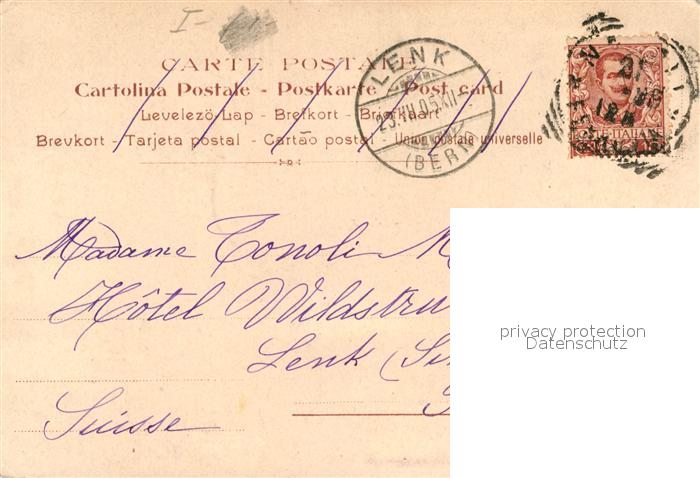 I-
CARTE POSTALE
Cartolina Postale - Postkarte - Post card
Levelezö-Lap - Brefkort - Briefkaart
Brevkort - Tarjeta postal - Cartão postal - Union postale universelle
LENK
(BERN)
Madame Tonoli M
Hôtel Wildstru
Lenk (Si
Suisse
privacy protection
Datenschutz